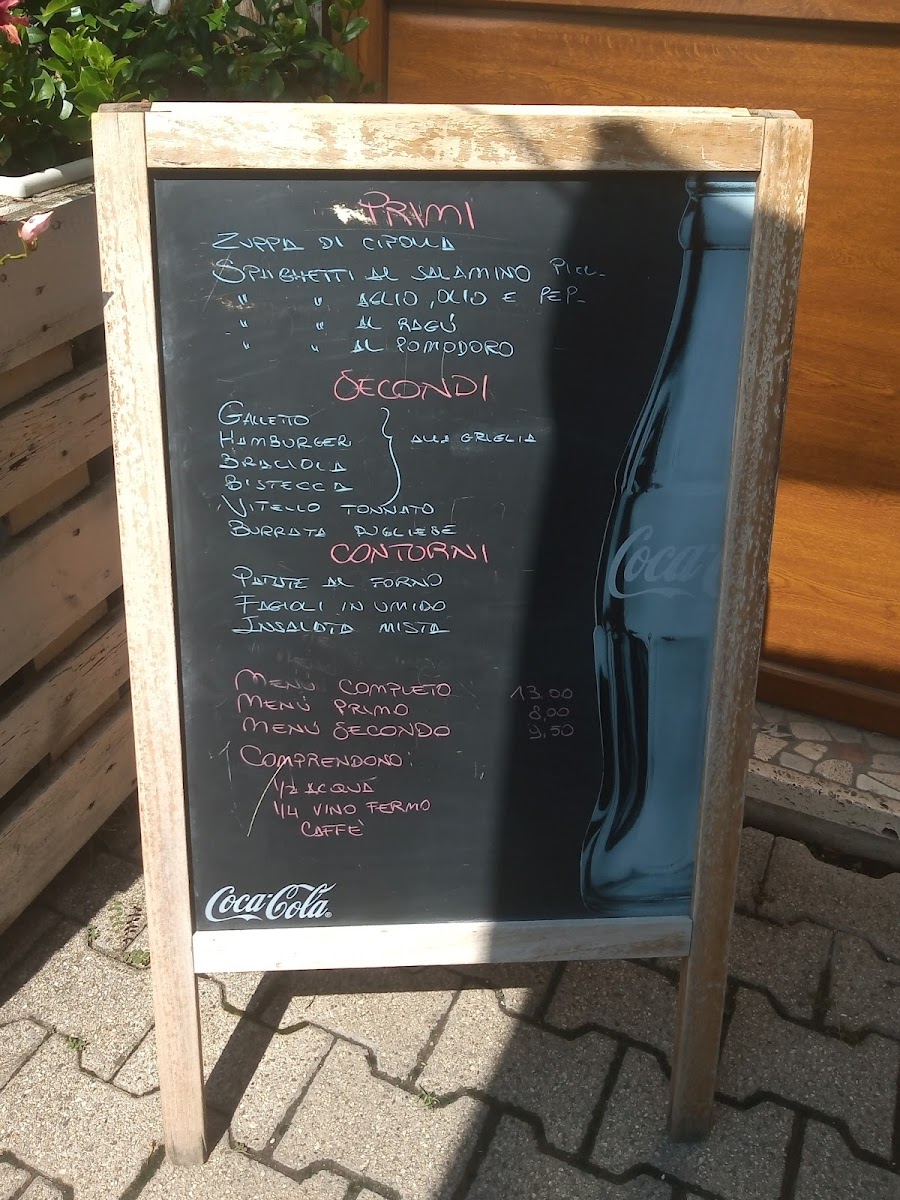 PRIMI
ZUPPA DI CIPOLLA
SPAGHETTI AL SALAMINO PICC-
" " AGLIO, OLIO E PEP-
" " AL RAGÚ
" " AL POMODORO
SECONDI
GALLETTO
HAMBURGER } ALLA GRIGLIA
BRACIOLA
BISTECCA
VITELLO TONNATO
BURRATA PUGLIESE
CONTORNI
PATATE AL FORNO
FAGIOLI IN UMIDO
INSALATA MISTA
MENÚ COMPLETO 13,00
MENÚ PRIMO 8,00
MENÚ SECONDO 9,50
COMPRENDONO:
1/2 ACQUA
1/4 VINO FERMO
CAFFE'
Coca-Cola
Coca-C